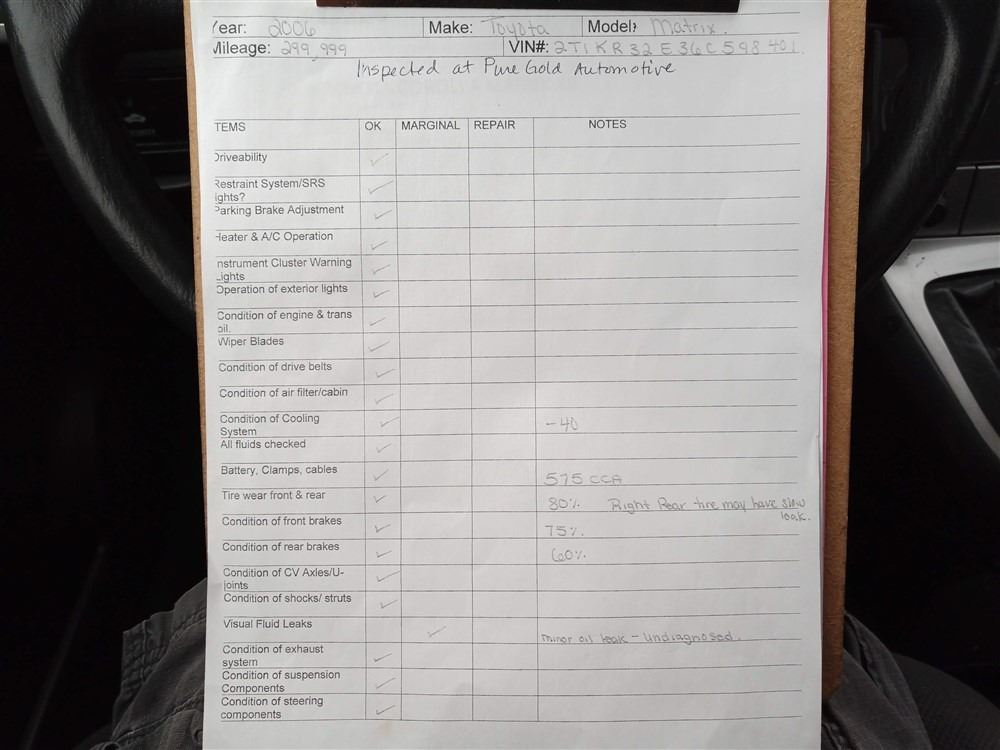 Year: 2006 Make: Toyota Model: Matrix.
Mileage: 299,999 VIN#: 2T1KR32E36C598401
Inspected at Pure Gold Automotive
TEMS OK MARGINAL REPAIR NOTES
Driveability ✓
Restraint System/SRS
ights? ✓
Parking Brake Adjustment ✓
Heater & A/C Operation ✓
nstrument Cluster Warning
Lights ✓
Operation of exterior lights ✓
Condition of engine & trans
oil. ✓
Wiper Blades ✓
Condition of drive belts ✓
Condition of air filter/cabin ✓
Condition of Cooling
System ✓ -40
All fluids checked ✓
Battery, Clamps, cables ✓ 575 CCA
Tire wear front & rear ✓ 80% Right Rear tire may have slow
leak.
Condition of front brakes ✓ 75%.
Condition of rear brakes ✓ 60%.
Condition of CV Axles/U-
joints ✓
Condition of shocks/ struts ✓
Visual Fluid Leaks ✓ minor oil leak - undiagnosed.
Condition of exhaust
system ✓
Condition of suspension
Components ✓
Condition of steering
components ✓